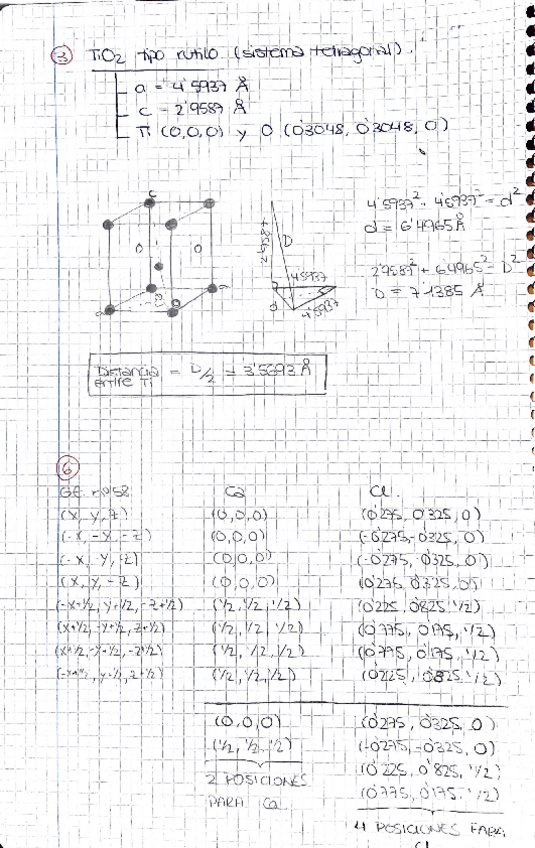 ③ TiO2 tipo rutilo (sistema tetragonal).
a = 4'5937 Å
c = 2'9587 Å
Ti (0,0,0) y O (0'3048, 0'3048, 0)
c
4'5937² + 4'5937² = d²
d = 6'4965 Å
2'9587
D
4'5937
d
4'5937
2'9587² + 6'4965² = D²
D = 7'1385 Å
Distancia entre Ti = D/2 = 3'5693 Å
⑥
G.E. nº58 Ca Cl
(x, y, z) (0,0,0) (0'275, 0'325, 0)
(-x, -y, -z) (0,0,0) (-0'275, -0'325, 0)
(-x, -y, z) (0,0,0) (-0'275, -0'325, 0)
(x, y, -z) (0,0,0) (0'275, 0'325, 0)
(-x+1/2, y+1/2, -z+1/2) (1/2, 1/2, 1/2) (0'225, 0'825, 1/2)
(x+1/2, -y+1/2, z+1/2) (1/2, 1/2, 1/2) (0'775, 0'175, 1/2)
(x+1/2, -y+1/2, -z+1/2) (1/2, 1/2, 1/2) (0'775, 0'175, 1/2)
(-x+1/2, y+1/2, z+1/2) (1/2, 1/2, 1/2) (0'225, 0'825, 1/2)
(0,0,0) (0'275, 0'325, 0)
(1/2, 1/2, 1/2) (-0'275, -0'325, 0)
(0'225, 0'825, 1/2)
(0'775, 0'175, 1/2)
2 POSICIONES
PARA Ca
4 POSICIONES PARA
Cl